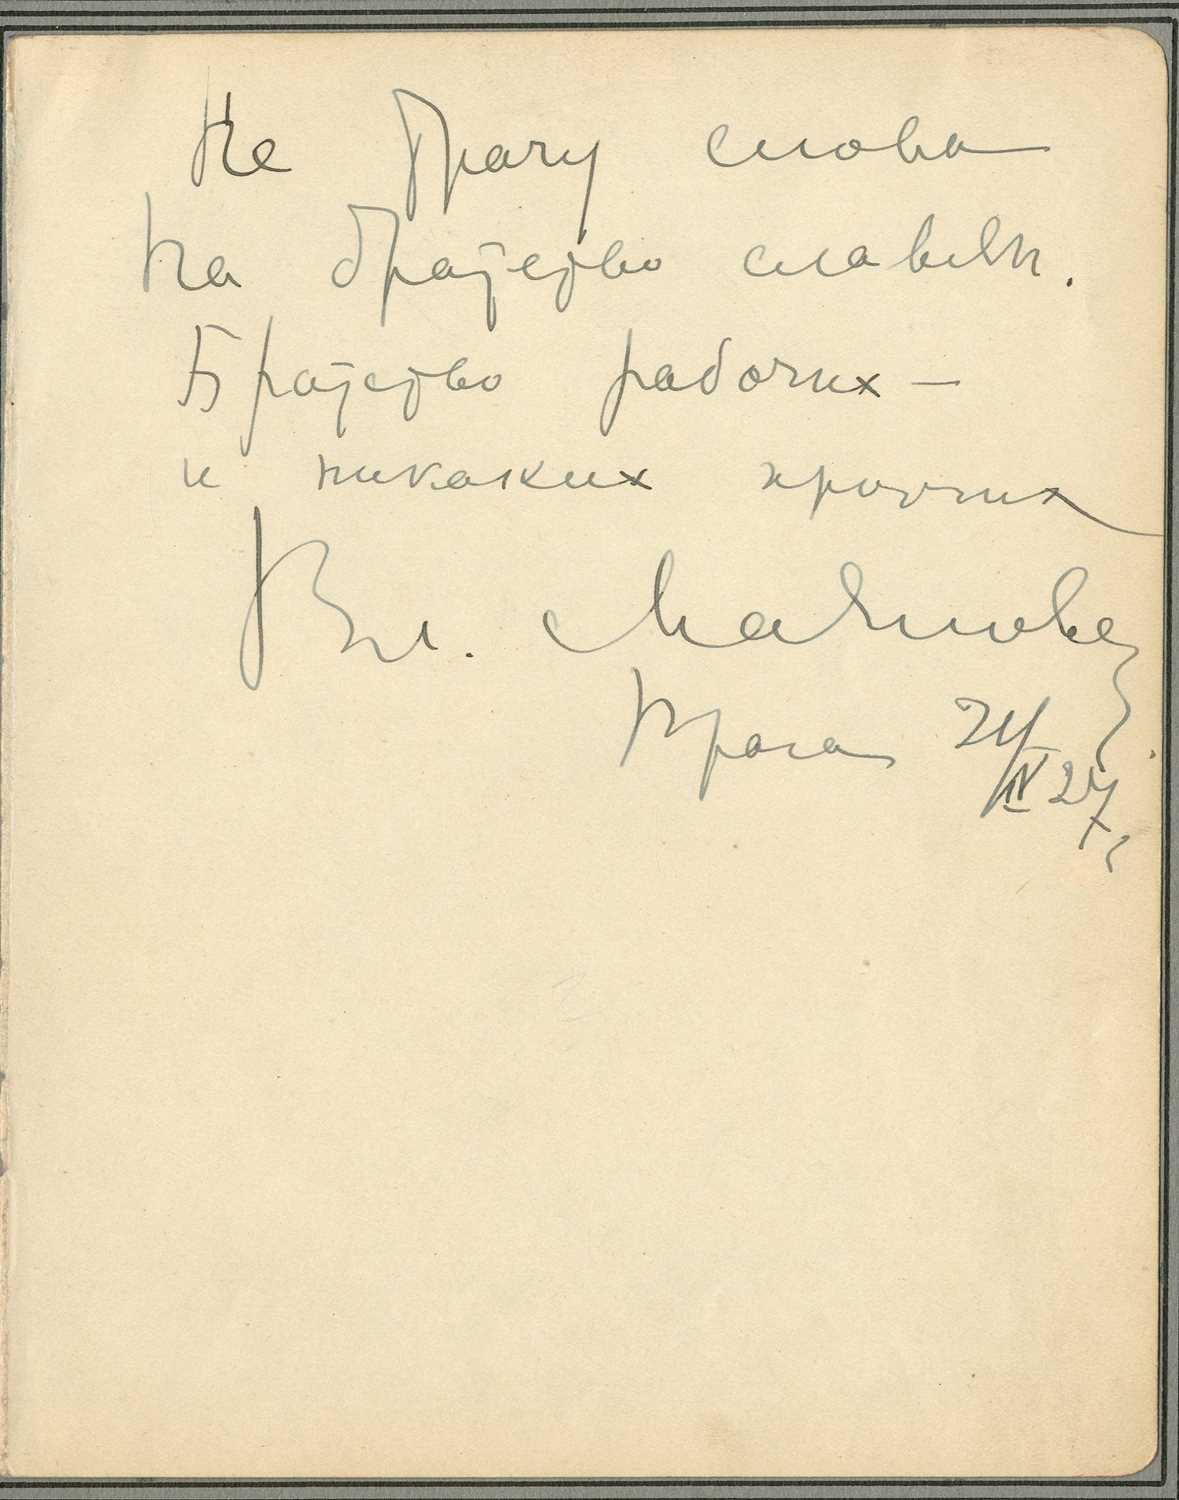 Не трачу слова
На братство славян.
Братство рабочих –
и никаких прочих
Вл. Маяковский
Прага 24/IV 27 г